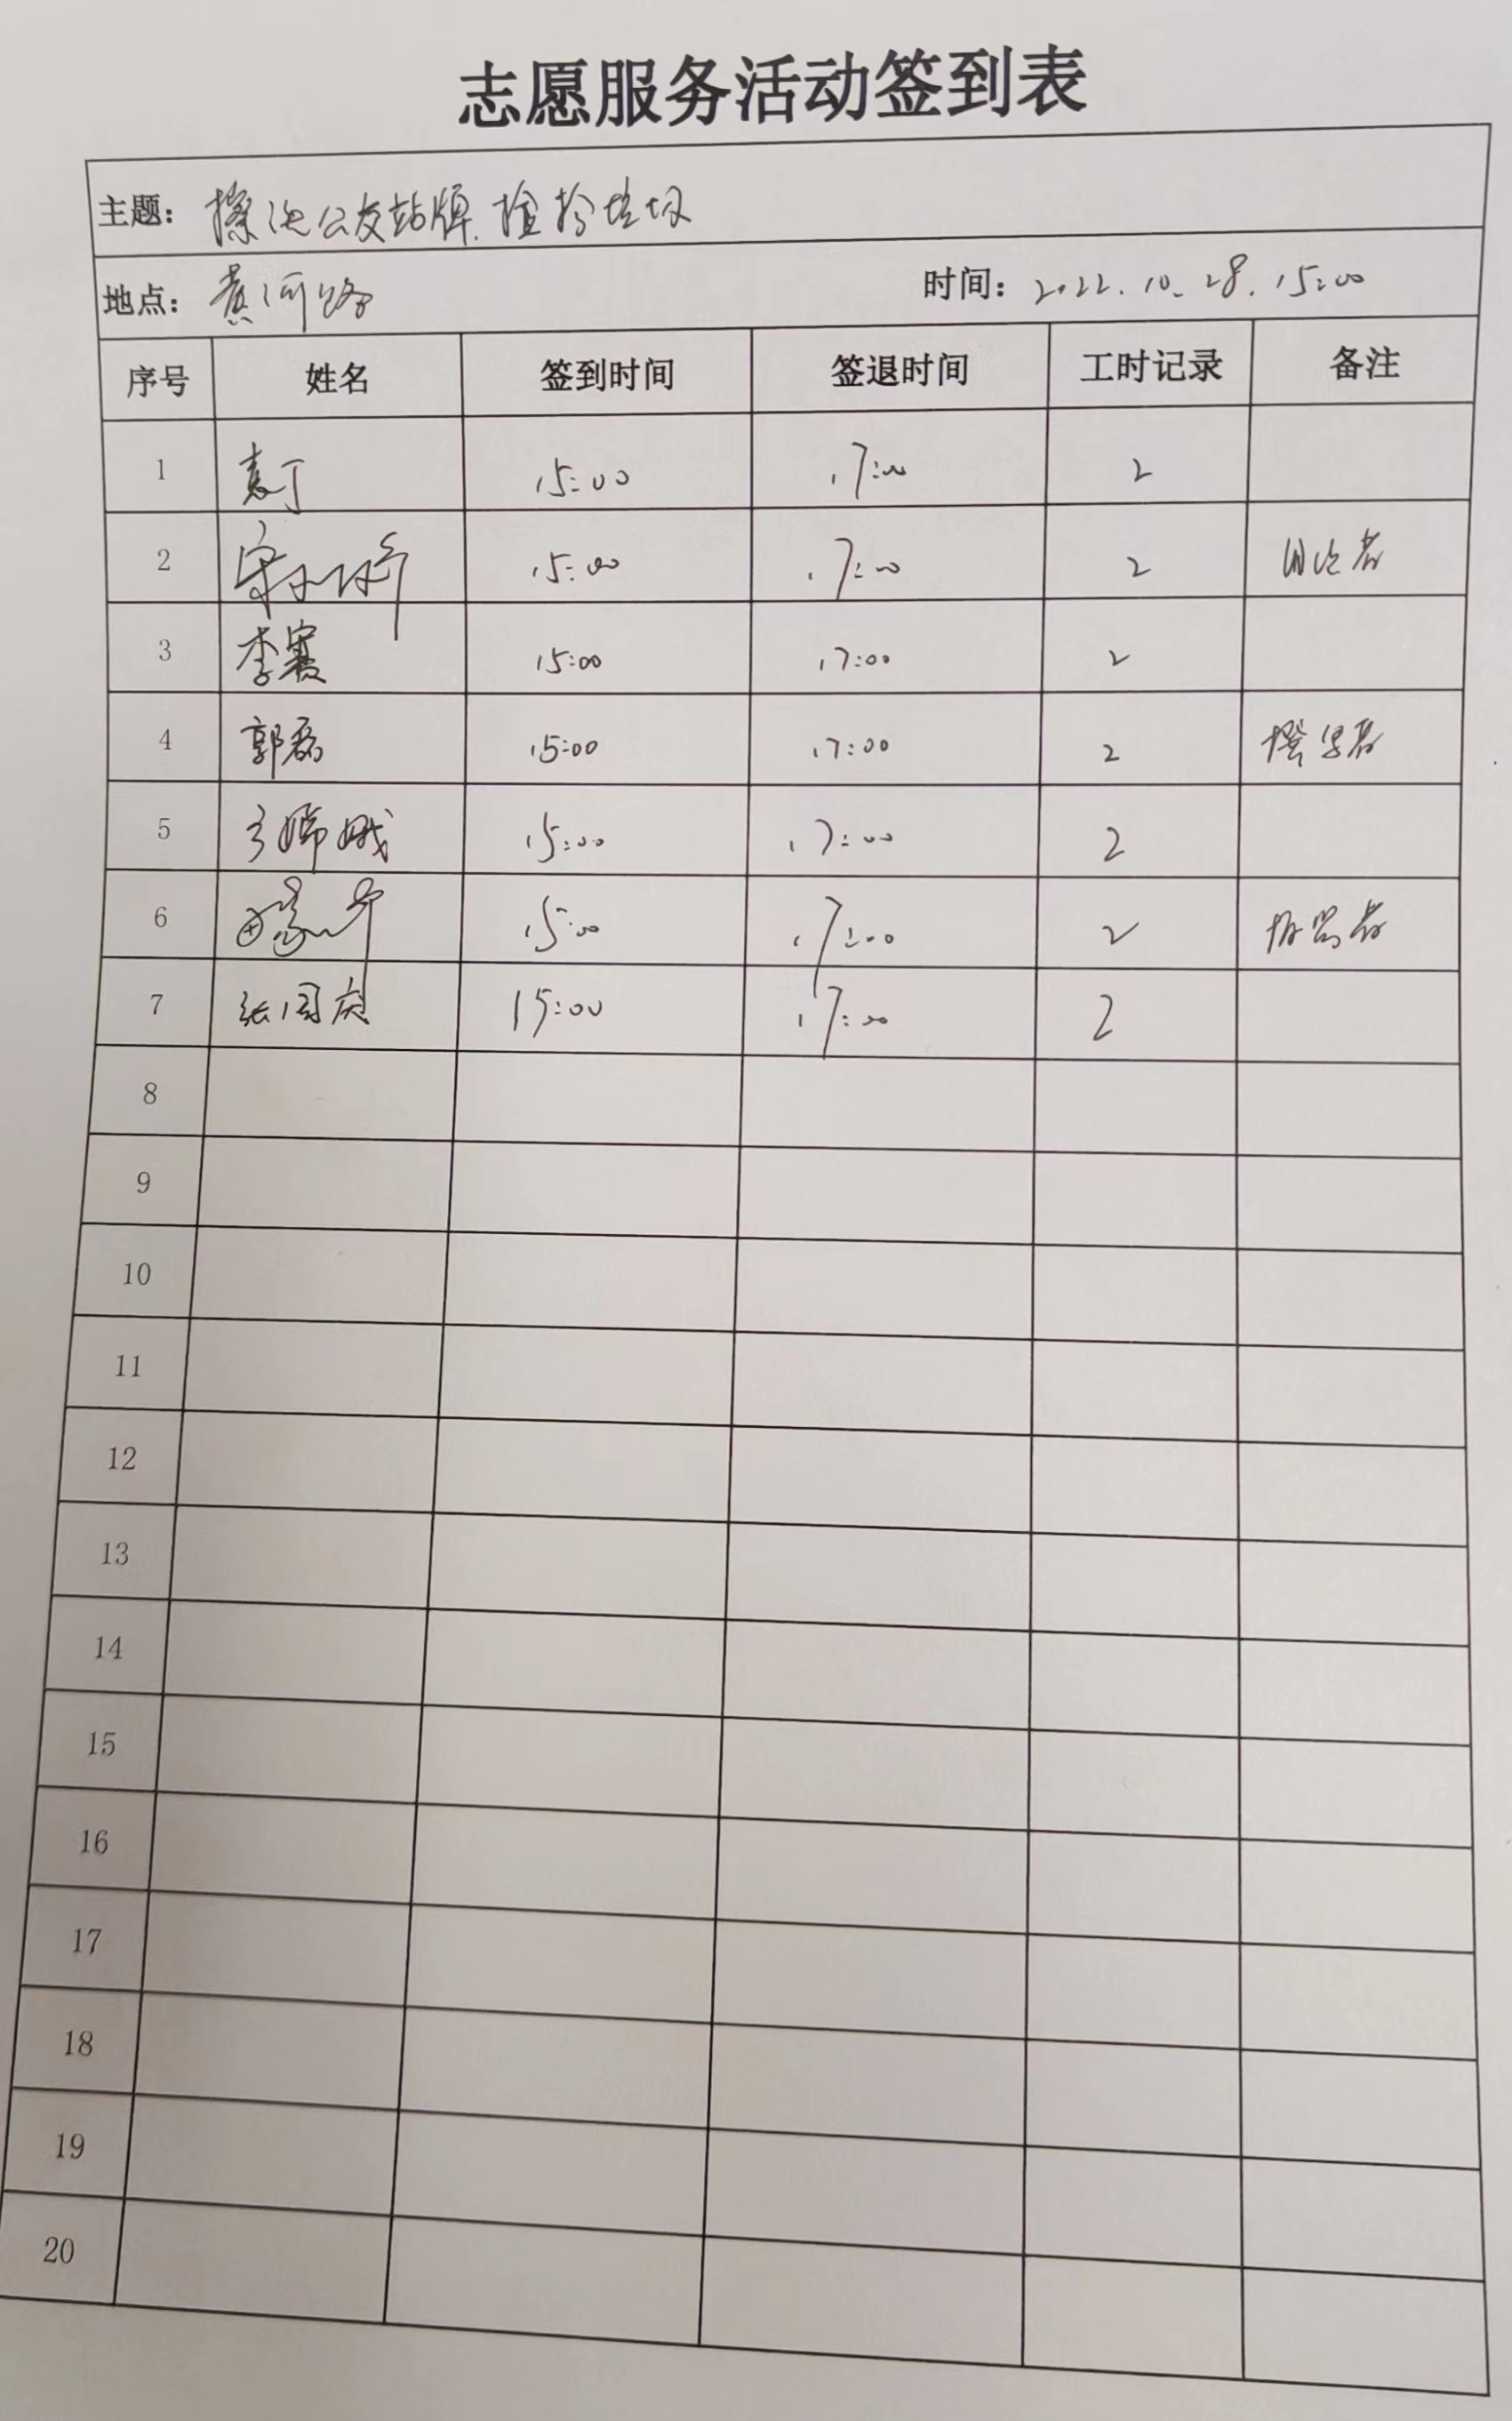 志愿服务活动签到表
主题：擦洗公交站牌、捡拾垃圾
地点：黄河路 时间：2022.10.28.15:00
序号 姓名 签到时间 签退时间 工时记录 备注
1 袁丁 15:00 17:00 2
2 15:00 17:00 2
3 李赛 15:00 17:00 2
4 郭磊 15:00 17:00 2
5 嫦娥 15:00 17:00 2
6 15:00 17:00 2
7 张国庆 15:00 17:00 2
8
9
10
11
12
13
14
15
16
17
18
19
20